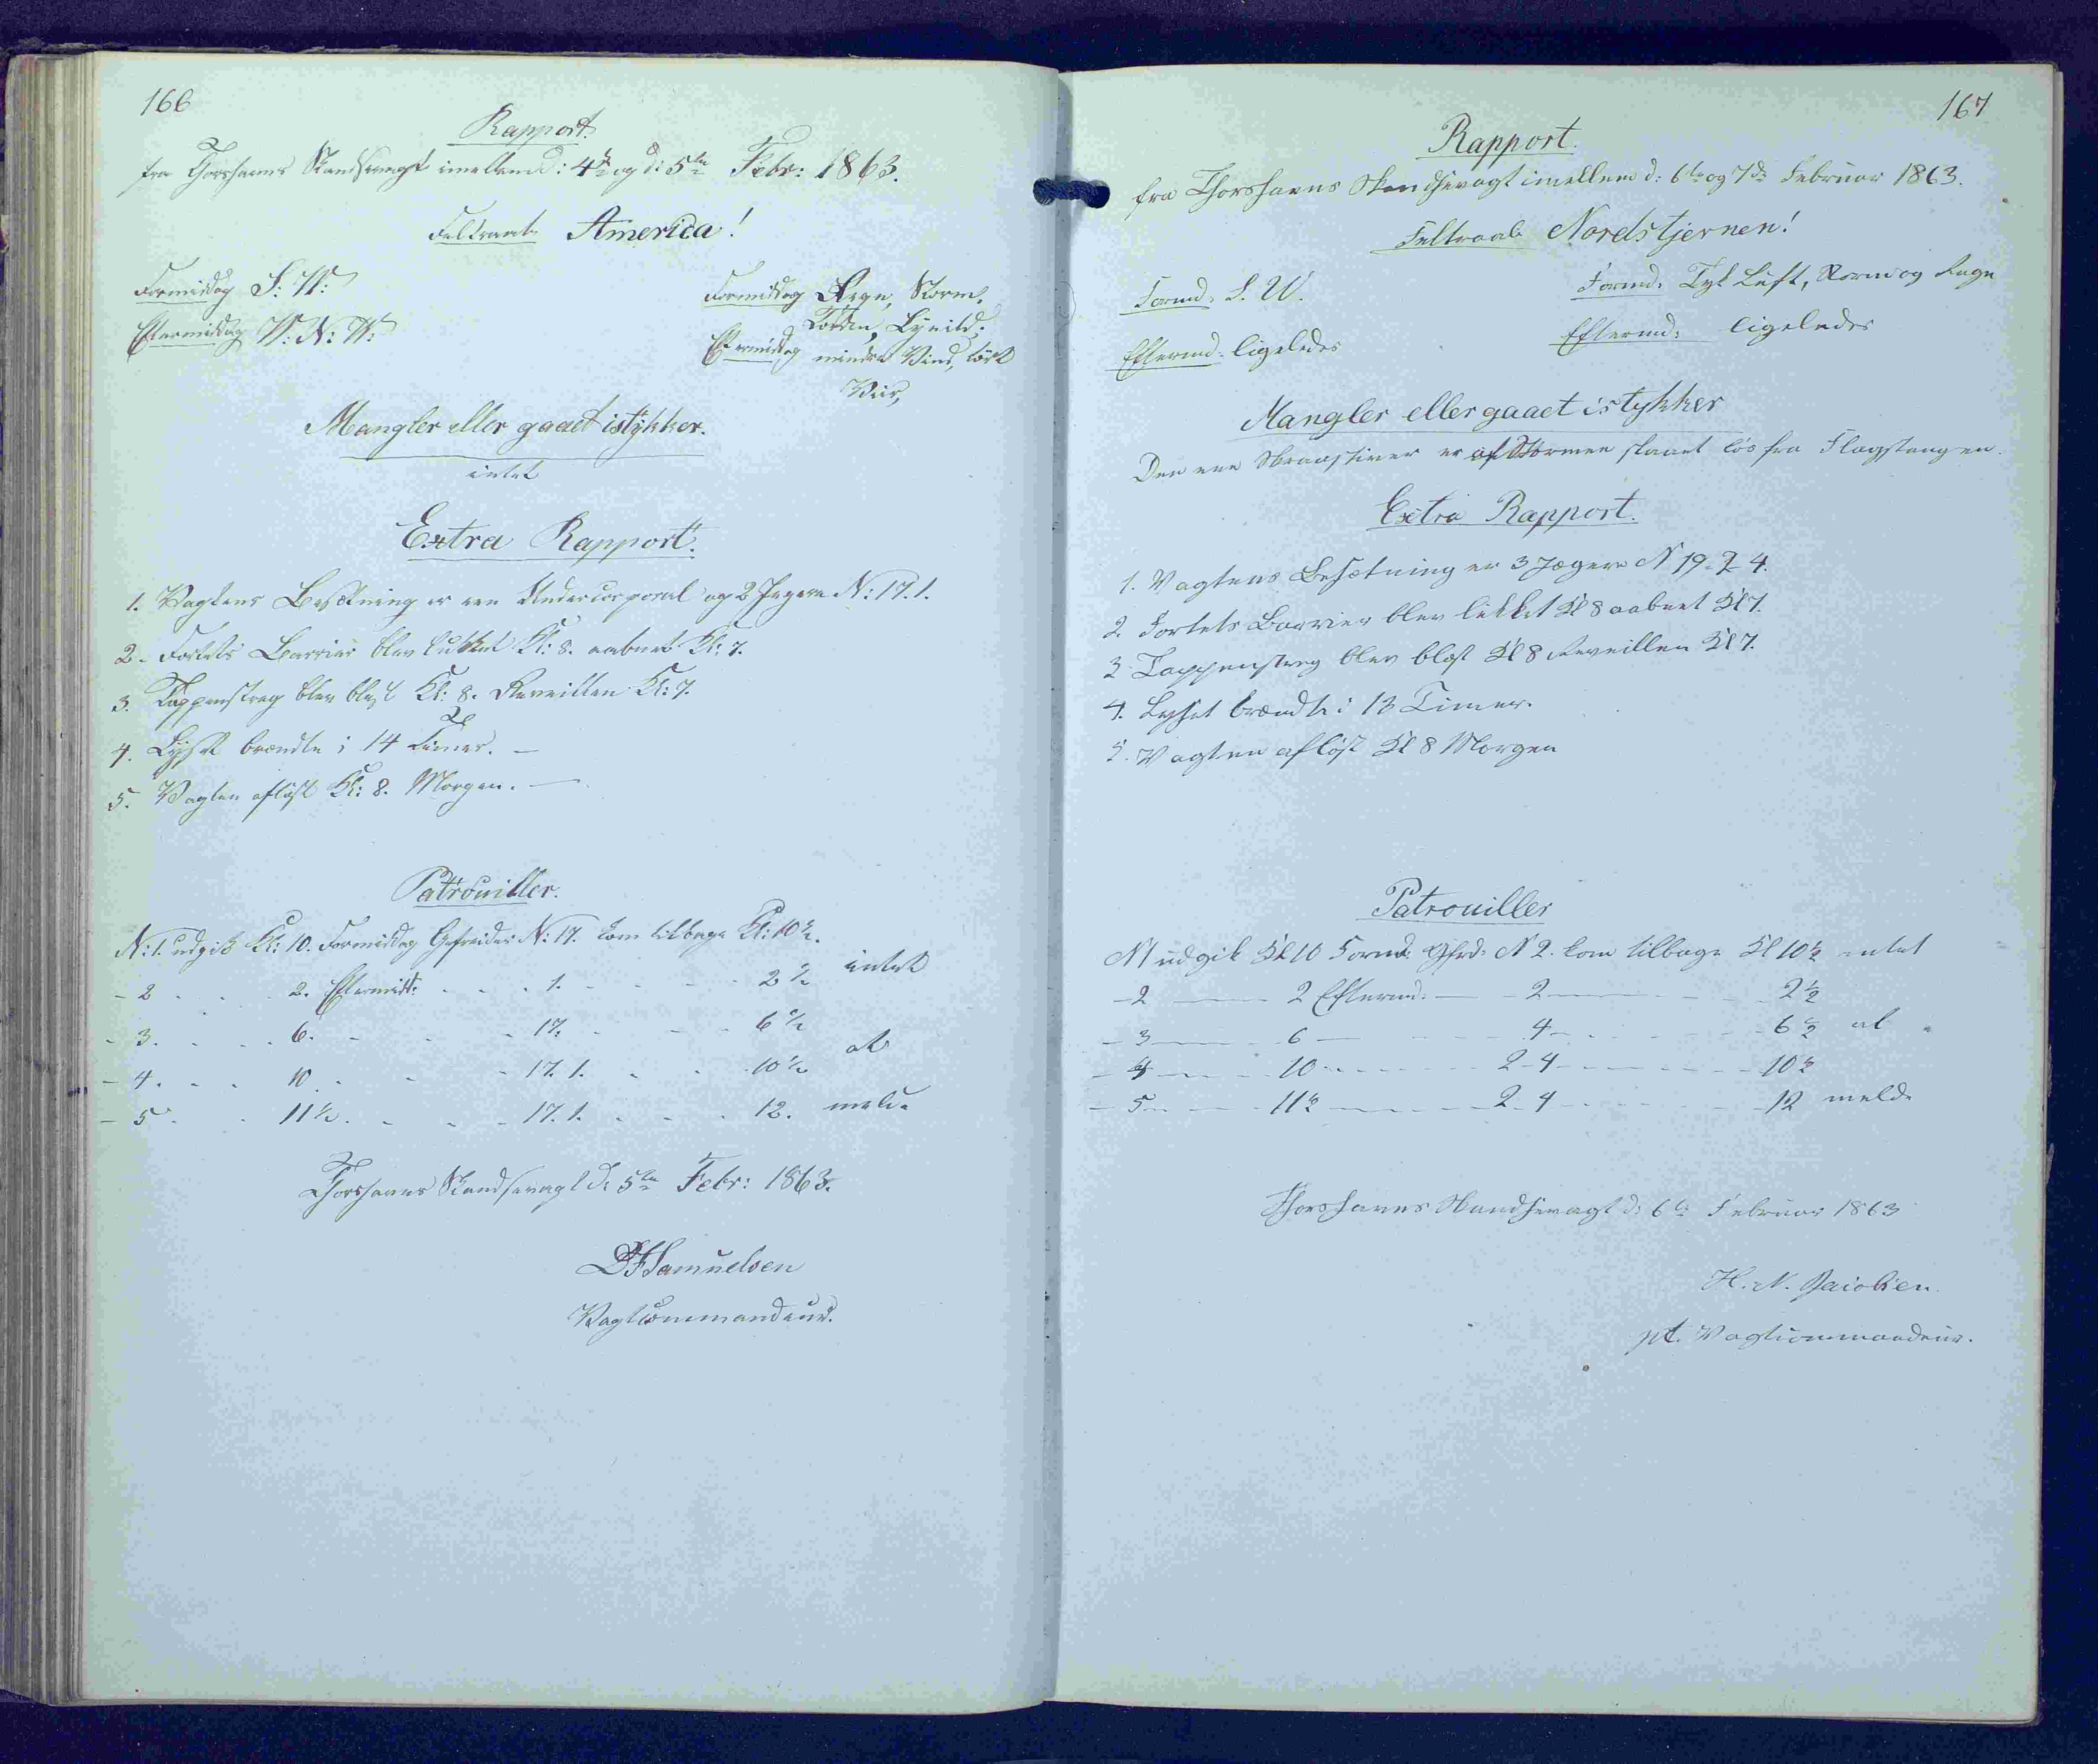 166
Rapport.
fra Thorshavns Skandsevagt imellem d: 4de og d: 5te Febr: 1863.
Feltraab America!
Formiddag S: W:
Eftermiddag W: N: W:
Formiddag Regn, Storm,
Torden, Lynild;
Eftermiddag mindre Vind, tørt
Veir,
Mangler eller gaaet istykker.
intet
Extra Rapport.
1. Vagtens Besætning er een Undercorporal og 2 Jægere N: 17. 1.
2. Fortets Barrier blev lukket Kl: 8. aabnet Kl: 7.
3. Tappenstreg blev blæst Kl: 8. Reveillen Kl: 7.
4. Lyset brændte i 14 Timer. —
5. Vagten afløst Kl: 8. Morgen. —
Patrouiller.
N: 1. udgik Kl: 10. Formiddag Gefreider N: 17. kom tilbage Kl: 10½.
- 2 . . . 2. Eftermidd: . . . 1. . . . 2½ intet
- 3. . . . 6. . . . 17. . . . 6½
- 4. . . . 10. . . . 17. 1. . . . 10½ at
- 5. . . 11½. . . . 17. 1. . . . 12. melde
Thorshavns Skandsevagt d: 5te Febr: 1863.
DFSamuelsen
Vagtcommandeur.
167
Rapport.
fra Thorshavns Skandsevagt imellem d: 6te og 7de Februar 1863.
Feltraab Nordstjernen!
Formd: S. W.
Eftermd: ligeledes
Formd: Tyk Luft, Storm og Regn
Eftermd: ligeledes
Mangler eller gaaet istykker
Den ene Skraastiver er af Stormen slaaet løs fra Flagstangen.
Extra Rapport.
1. Vagtens Besætning er 3 Jægere N 19 - 2 4.
2. Fortets Barrier blev lukket Kl 8 aabnet Kl 7.
3 Tappenstreg blev blæst Kl 8 Reveillen Kl 7.
4. Lyset brændte i 13 Timer.
5. Vagten afløst Kl 8 Morgen
Patrouiller
N 1 udgik Kl 10 Formd: Gfrd: N 2. kom tilbage Kl 10½ intet
- 2 — 2 Eftermd: — - 2 — 2½
- 3 — 6 — 4 — 6½ at
- 4 — 10 — 2 - 4 — 10½
- 5 — 11½ — 2 - 4 — 12 melde
Thorshavns Skandsevagt d: 6te Februar 1863
H. N. Jacobsen.
pt. Vagtcommandeur.